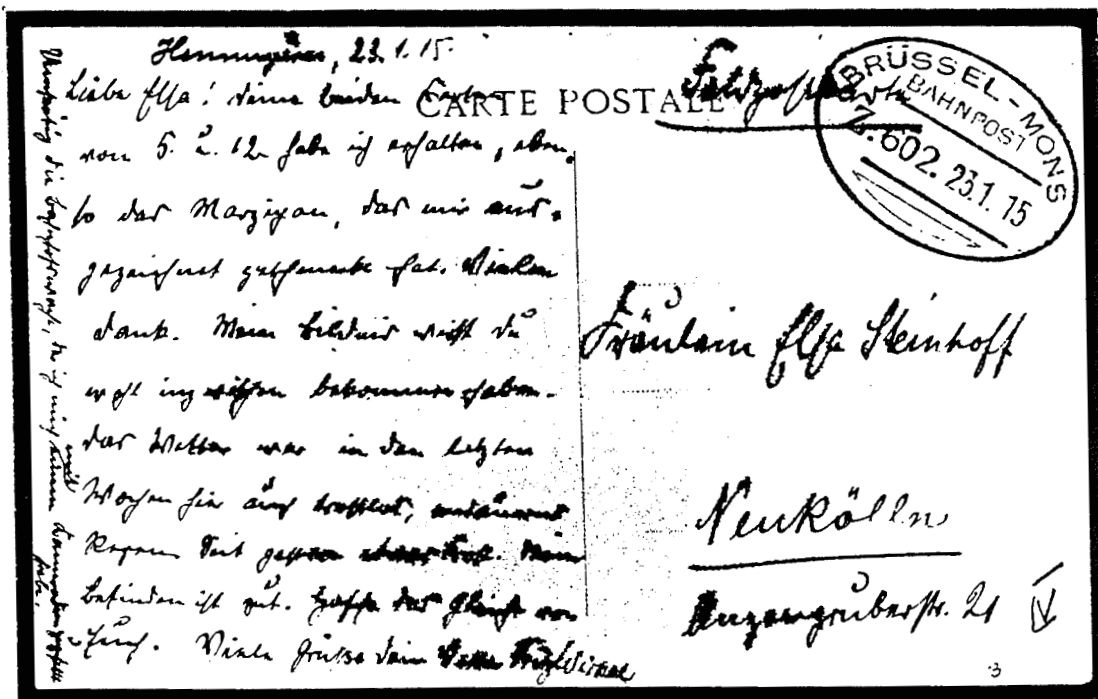 22.1.15.
Liebe Elsa! Deine beiden Karten
vom 5. u. 12. habe ich erhalten, eben-
so das Marzipan, das mir aus-
gezeichnet geschmeckt hat. Vielen
Dank. Mein Bildnis wirst Du
wohl inzwischen bekommen haben.
Das Wetter war in den letzten
Wochen hier auch trostlos, andauernd
Regen. Seit gestern etwas Frost. Mein
Befinden ist gut. Hoffe das Gleiche von
Euch. Viele Grüße Dein Vetter Fritz
Umseitig die
ich mit
Kameraden
habe.
CARTE POSTALE
Feldpostkarte
BRÜSSEL-MONS
BAHNPOST
Z.602. 23.1.15
Fräulein Elsa Steinhoff
Neukölln
Anzengruberstr. 21
IV
3